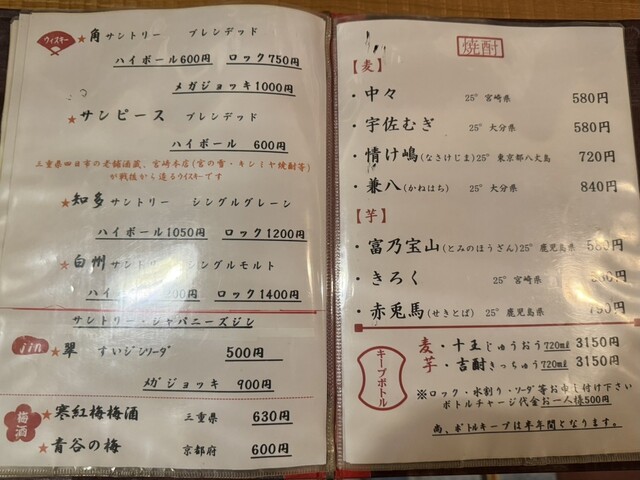 ウィスキー
★角 サントリー ブレンデッド
ハイボール600円 ロック750円
メガジョッキ1000円
★サンピース ブレンデッド
ハイボール 600円
三重県四日市の老舗酒蔵、宮崎本店(宮の雪・キンミヤ焼酎等)
が戦後から造るウイスキーです
★知多 サントリー シングルグレーン
ハイボール1050円 ロック1200円
★白州 サントリー シングルモルト
ロック1400円
サントリー・ジャパニーズジン
jin
★翠 すいジンソーダ 500円
メガジョッキ 900円
梅酒
★寒紅梅梅酒 三重県 630円
★青谷の梅 京都府 600円
焼酎
【麦】
・中々 25° 宮崎県 580円
・宇佐むぎ 25° 大分県 580円
・情け嶋(なさけじま) 25° 東京都八丈島 720円
・兼八(かねはち) 25° 大分県 840円
【芋】
・富乃宝山(とみのほうざん) 25° 鹿児島県 580円
・きろく 25° 宮崎県
・赤兎馬(せきとば) 25° 鹿児島県 790円
キープボトル
麦・十王じゅうおう 720㎖ 3150円
芋・吉酎きっちゅう 720㎖ 3150円
※ロック・水割り・ソーダ等お申し付け下さい
ボトルチャージ代金お一人様500円
尚、ボトルキープは半年間となります。